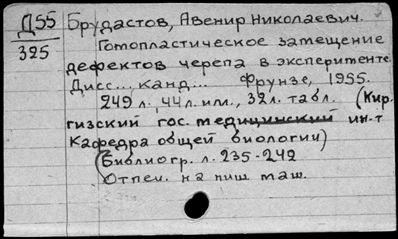 Д55
325
Брудастов, Авенир Николаевич.
Гомопластическое замещение
дефектов черепа в эксперименте.
Дисс... канд... Фрунзе, 1955.
249 л., 44 л. илл., 32 л. табл. (Кир-
гизский гос. медицинский ин-т
Кафедра общей биологии)
(Библиогр. л. 235-242
Отпеч. на пиш маш.